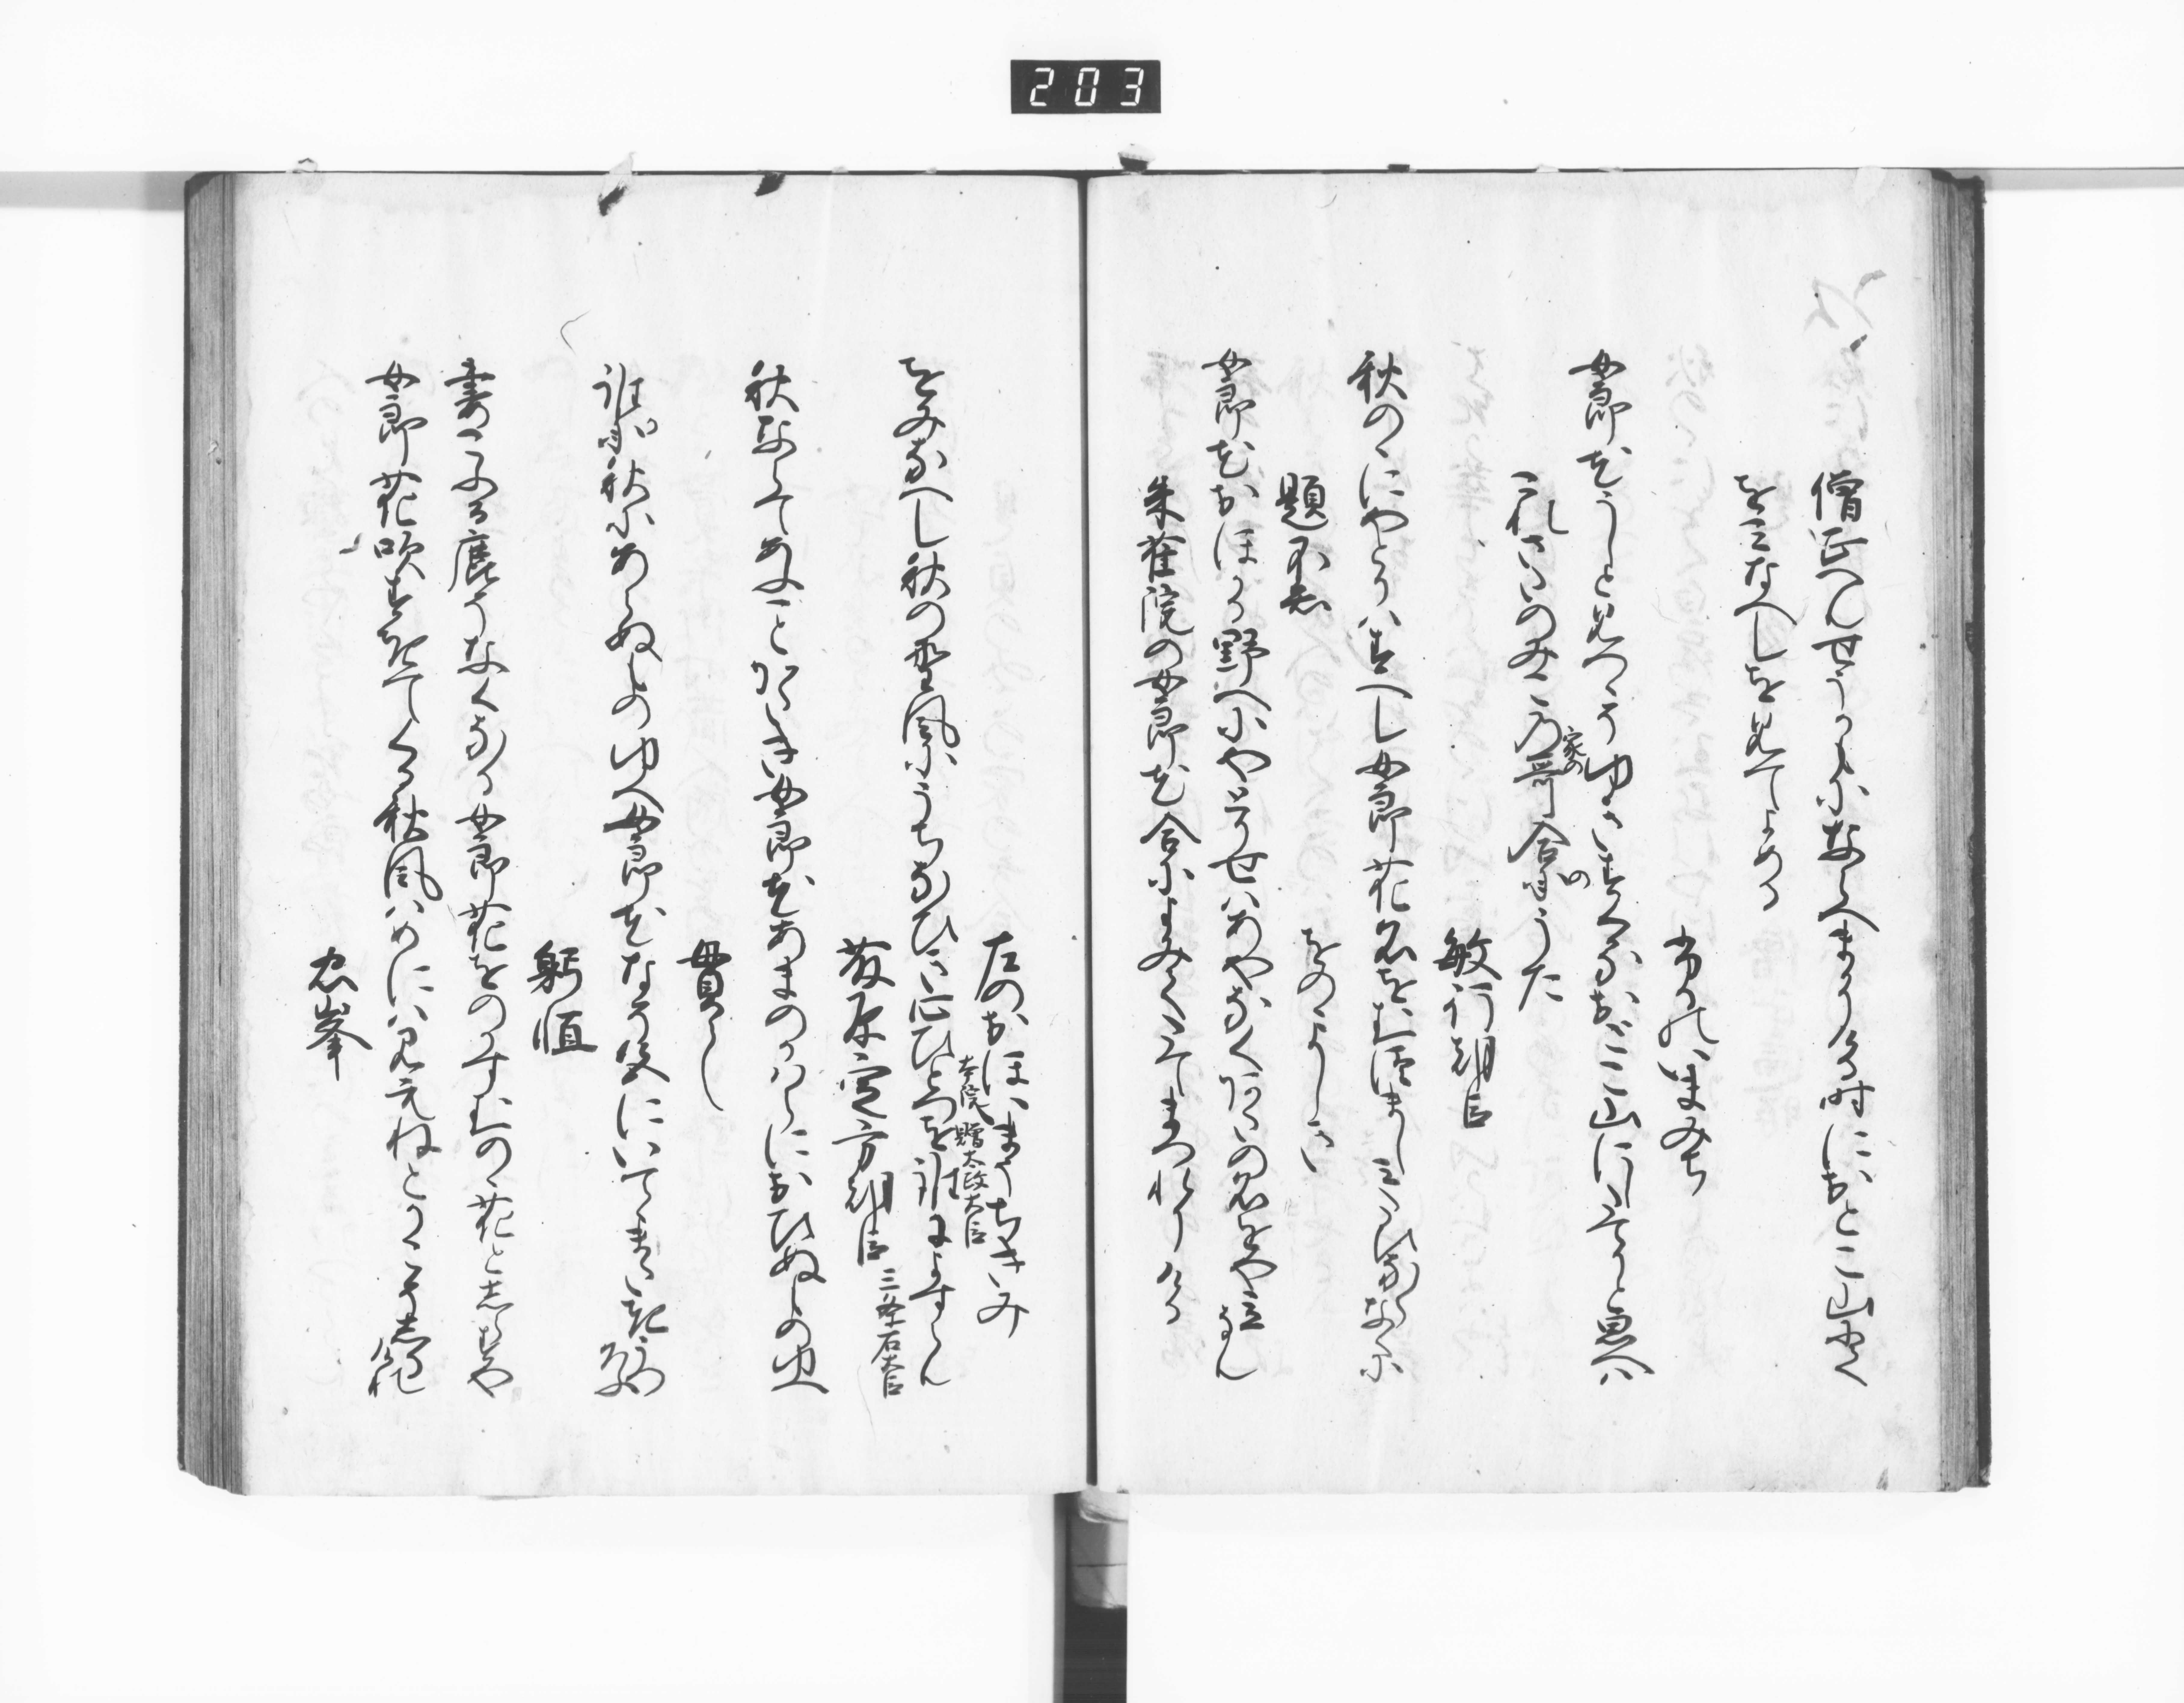 203
僧正へんせうかもとにならへまかりける時におとこ山にて
をみなへしを見てよめる
ふるのいまみち
女郎花うしと見つゝそゆきすくるおとこ山にしたてりと思へは
これさたのみこの家の哥合のうた
敏行朝臣
秋のゝにやとりはすへし女郎花名をむつましみたひならなくに
題不知
をのゝよし木
女郎花おほかる野へにやとりせはあやなくあたの名をや立なむ
朱雀院の女郎花合によみてたてまつりける
左のおほいまうちきみ
本院贈太政大臣
をみなへし秋の野風にうちなひき心ひとつを誰によすらん
藤原定方朝臣 三条右大臣
秋ならてあふことかたき女郎花あまのかはらにおひぬものゆへ
貫之
誰か秋にあらぬものゆへ女郎花なそ色にいてゝまたきうつろふ
躬恒
妻こふる鹿そなくなる女郎花をのかすむのゝ花としらすや
女郎花吹すきてくる秋風はめには見えねとかこそしるけれ
忠岑